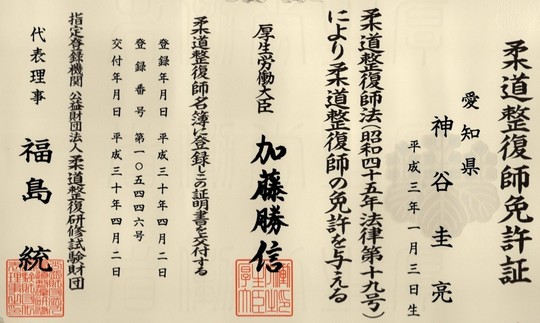 柔道整復師免許証
愛知県
神谷圭亮
平成三年一月三日生
柔道整復師法(昭和四十五年法律第十九号)
により柔道整復師の免許を与える
厚生労働大臣 加藤勝信
柔道整復師名簿に登録しこの証明書を交付する
登録年月日 平成三十年四月二日
登録番号 第一〇五四四六号
交付年月日 平成三十年四月二日
指定登録機関 公益財団法人 柔道整復研修試験財団
代表理事 福島統